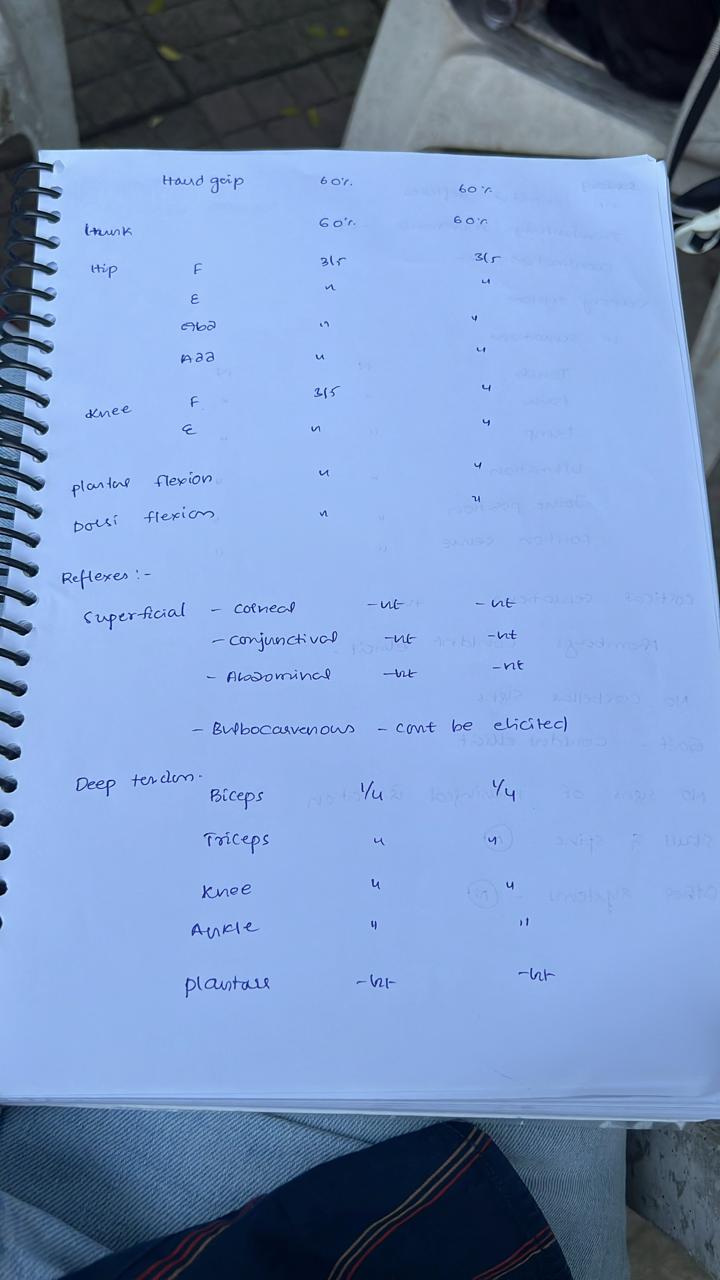 Hand grip 60%. 60%
trunk 60%. 60%
Hip F 3/5 3/5
E " "
Abd " "
Add " "
Knee F. 3/5 "
E " "
plantar flexion " "
Dorsi flexion " "
Reflexes :-
Superficial - corneal -nt -nt
- conjunctival -nt -nt
- Abdominal -nt -nt
- Bulbocarvenous - cant be elicited
Deep tendon.
Biceps 1/4 1/4
Triceps " "
Knee " "
Ankle " "
plantar -nt -nt